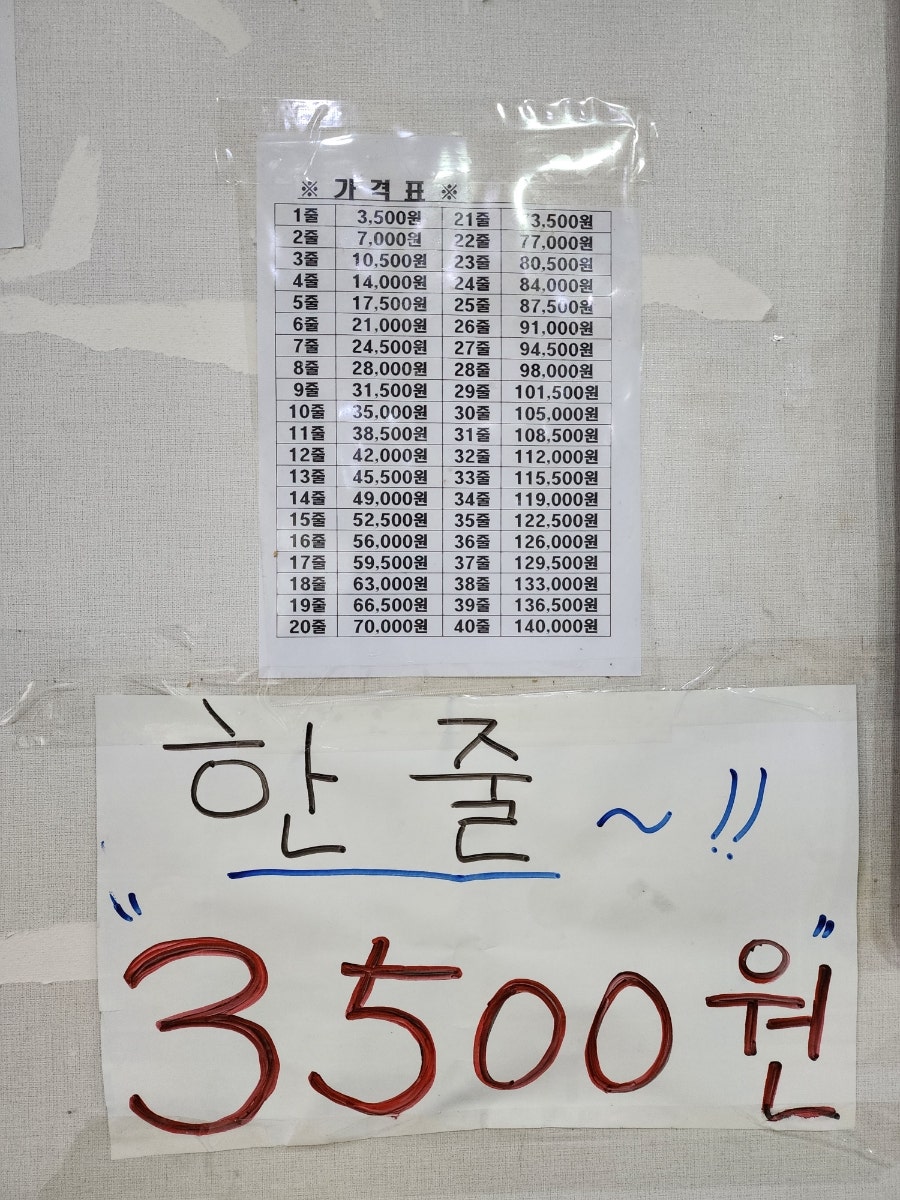 ※ 가 격 표 ※
1줄 3,500원 21줄 73,500원
2줄 7,000원 22줄 77,000원
3줄 10,500원 23줄 80,500원
4줄 14,000원 24줄 84,000원
5줄 17,500원 25줄 87,500원
6줄 21,000원 26줄 91,000원
7줄 24,500원 27줄 94,500원
8줄 28,000원 28줄 98,000원
9줄 31,500원 29줄 101,500원
10줄 35,000원 30줄 105,000원
11줄 38,500원 31줄 108,500원
12줄 42,000원 32줄 112,000원
13줄 45,500원 33줄 115,500원
14줄 49,000원 34줄 119,000원
15줄 52,500원 35줄 122,500원
16줄 56,000원 36줄 126,000원
17줄 59,500원 37줄 129,500원
18줄 63,000원 38줄 133,000원
19줄 66,500원 39줄 136,500원
20줄 70,000원 40줄 140,000원
한 줄 ~ !!
"3500원"